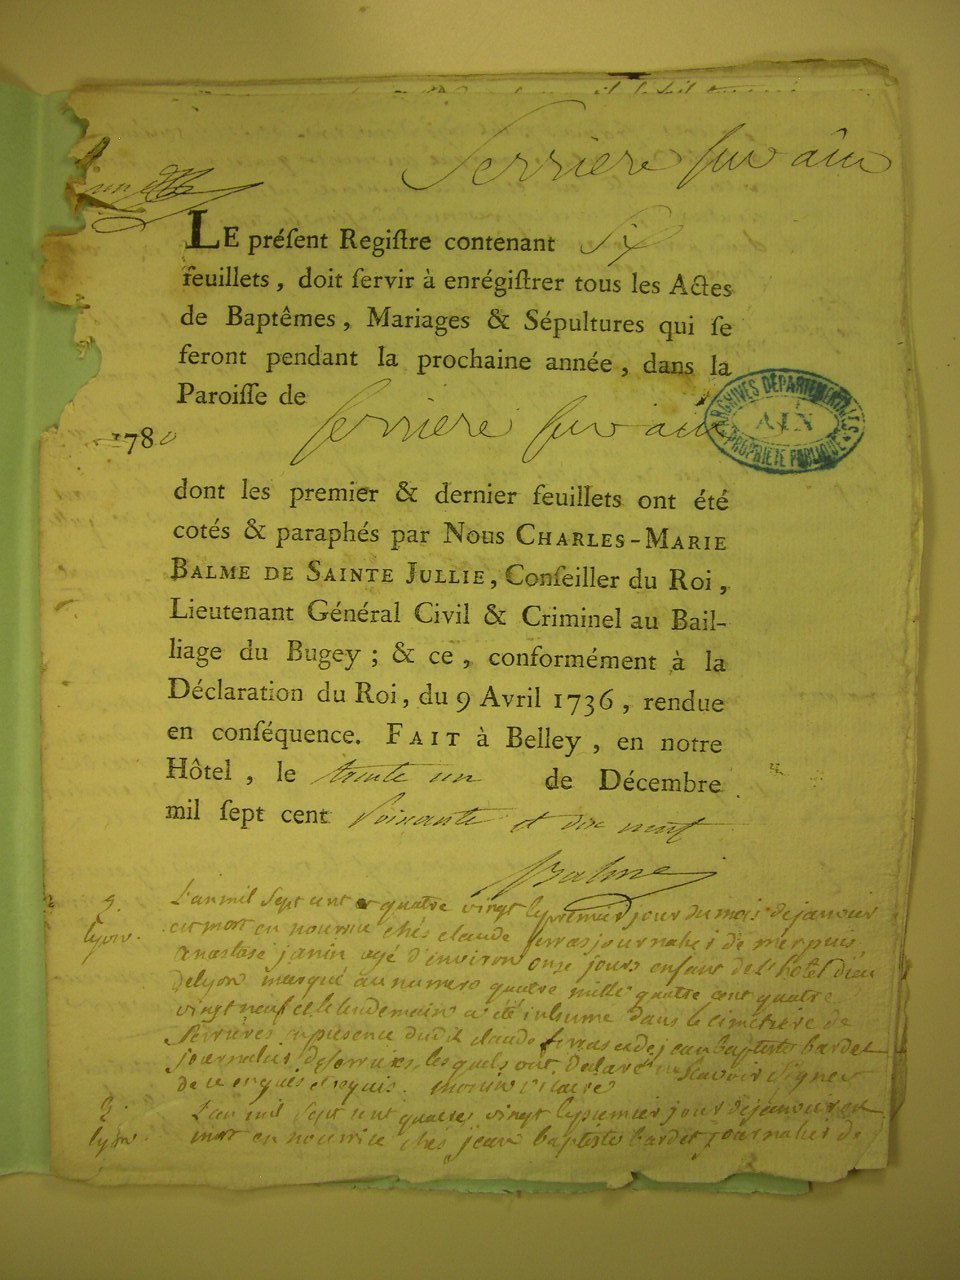 Serriere sur ain
LE préſent Regiſtre contenant Six
feuillets, doit ſervir à enrégiſtrer tous les Actes
de Baptêmes, Mariages & Sépultures qui ſe
feront pendant la prochaine année, dans la
Paroiſſe de
serriere sur ain
1780
ARCHIVES DÉPARTEMENTALES
AIN
PROPRIÉTÉ PUBLIQUE
dont les premier & dernier feuillets ont été
cotés & paraphés par Nous CHARLES-MARIE
BALME DE SAINTE JULLIE, Conſeiller du Roi,
Lieutenant Général Civil & Criminel au Bail-
liage du Bugey; & ce, conformément à la
Déclaration du Roi, du 9 Avril 1736, rendue
en conſéquence. FAIT à Belley, en notre
Hôtel, le trente un de Décembre
mil ſept cent Soixante et dix neuf
Balme
L'an mil sept cent quatre vingt le premier jour du mois de janvier
est mort en nourrice chés claude ferras journalier de merpuis
anastase janin agé d'environ onze jours enfant de l'hotel dieu
de lyon marqué au numero quatre mille quatre cent quatre
vingt neuf et le lendemain a été inhumé dans le cimetiere de
Serrieres en presence dudit claude ferras et de jean baptiste bardet
journalier de serrieres lesquels ont declaré ne scavoir signer
de ce enquis et requis. vicaire
lyon.
L'an mil sept cent quatre vingt le premier jour de janvier est
mort en nourrice chés jean baptiste bardet journalier de